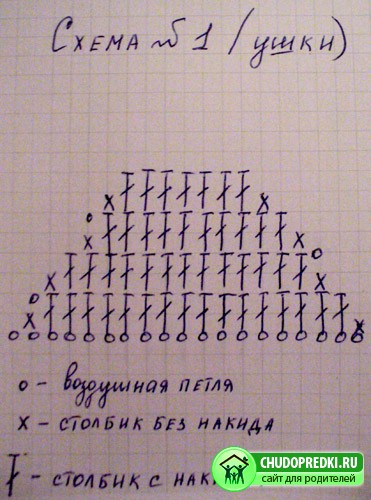 Схема № 1 /ушки)
о - воздушная петля
х - столбик без накида
- столбик с нак
CHUDOPREDKI.RU
сайт для родителей